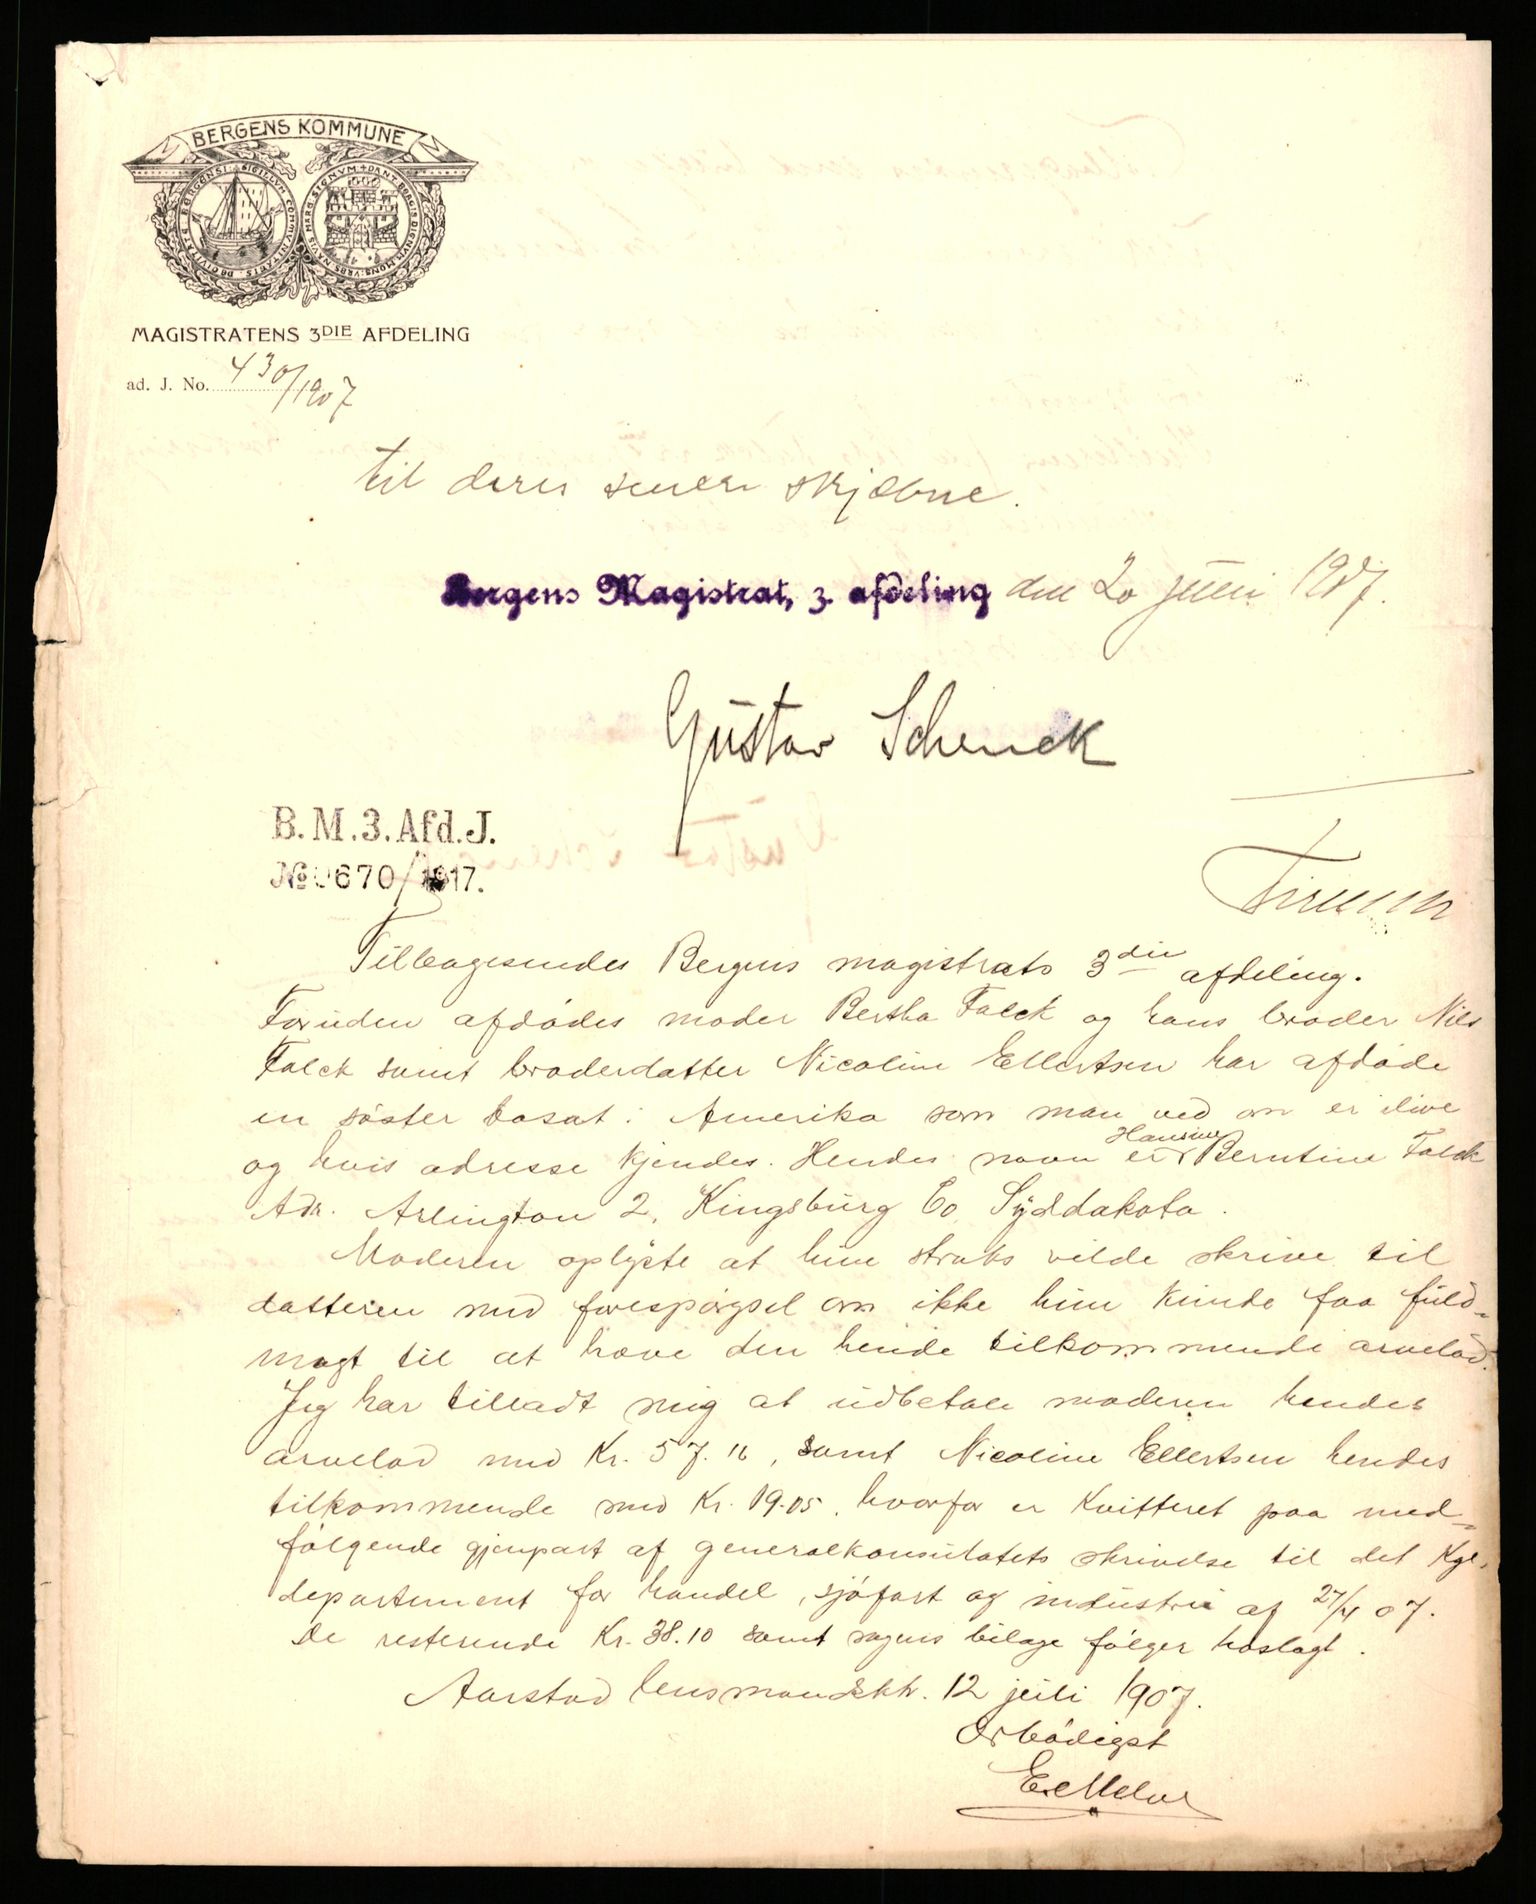 BERGENS KOMMUNE
SIGILLVM COMMVNITATIS DE CIVITATE BERGENSI
SIGNVM DANT BERGIS DIGNVM MONS VRBS NAVIS MARE
MAGISTRATENS 3DIE AFDELING
ad. J. No. 430/1907
til deres senere skjæbne.
Bergens Magistrat, 3. afdeling den 20 juni 1907.
Gustav Schenck
B. M. 3. Afd. J.
№ 0670/1917.
Tilbagesendes Bergens magistrats 3die afdeling.
Foruden afdødes moder Bertha Falck og hans broder Nils
Falck samt broderdatter Nicoline Ellertsen har afdøde
en søster bosat i Amerika som man ved om er ilive
og hvis adresse kjendes. Hendes navn er Hansine Berntine Falck
Adr. Arlington 2, Kingsburg Co Syddakota.
Moderen oplyste at hun straks vilde skrive til
datteren med forespørgsel om ikke hun kunde faa fuld-
magt til at hæve den hende tilkommende arvelod.
Jeg har tilladt mig at udbetale moderen hendes
arvelod med Kr. 57.16, samt Nicoline Ellertsen hendes
tilkommende med Kr. 19.05, hvorfor er kvitteret paa med-
følgende gjenpart af generalkonsulatets skrivelse til det Kgl.
departement for handel, sjøfart og industri af 27/4 07.
De resterende Kr. 38.10 samt sagens bilage følger hoslagt.
Aarstad lensmandskt. 12 juli 1907.
Ærbødigst